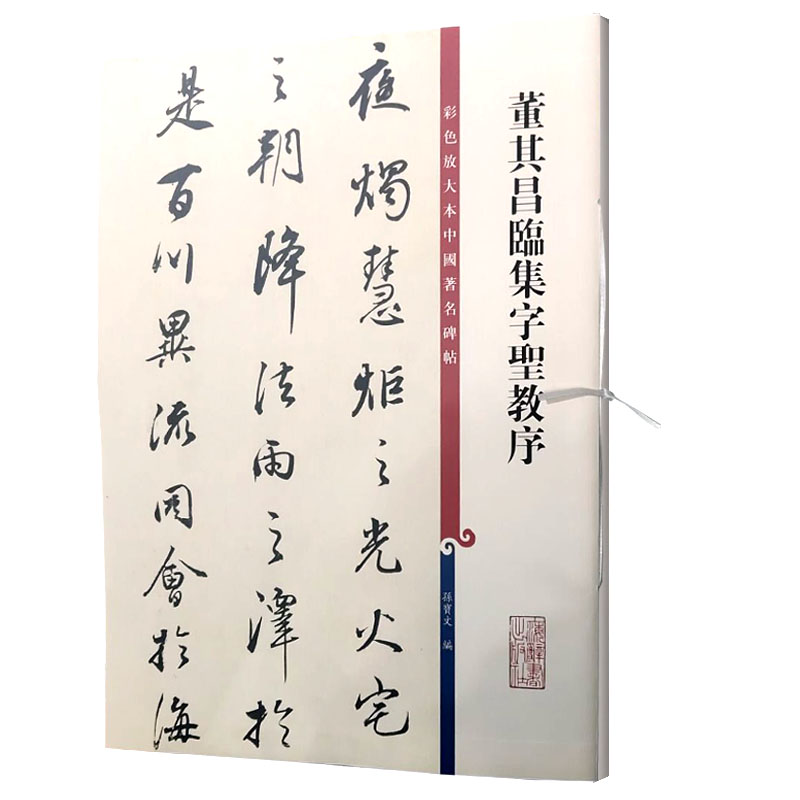 董其昌臨集字聖教序
彩色放大本中國著名碑帖
孫寶文 編
夜燭慧炬之光火宅
之朝降法雨之澤於
是百川異流同會於海